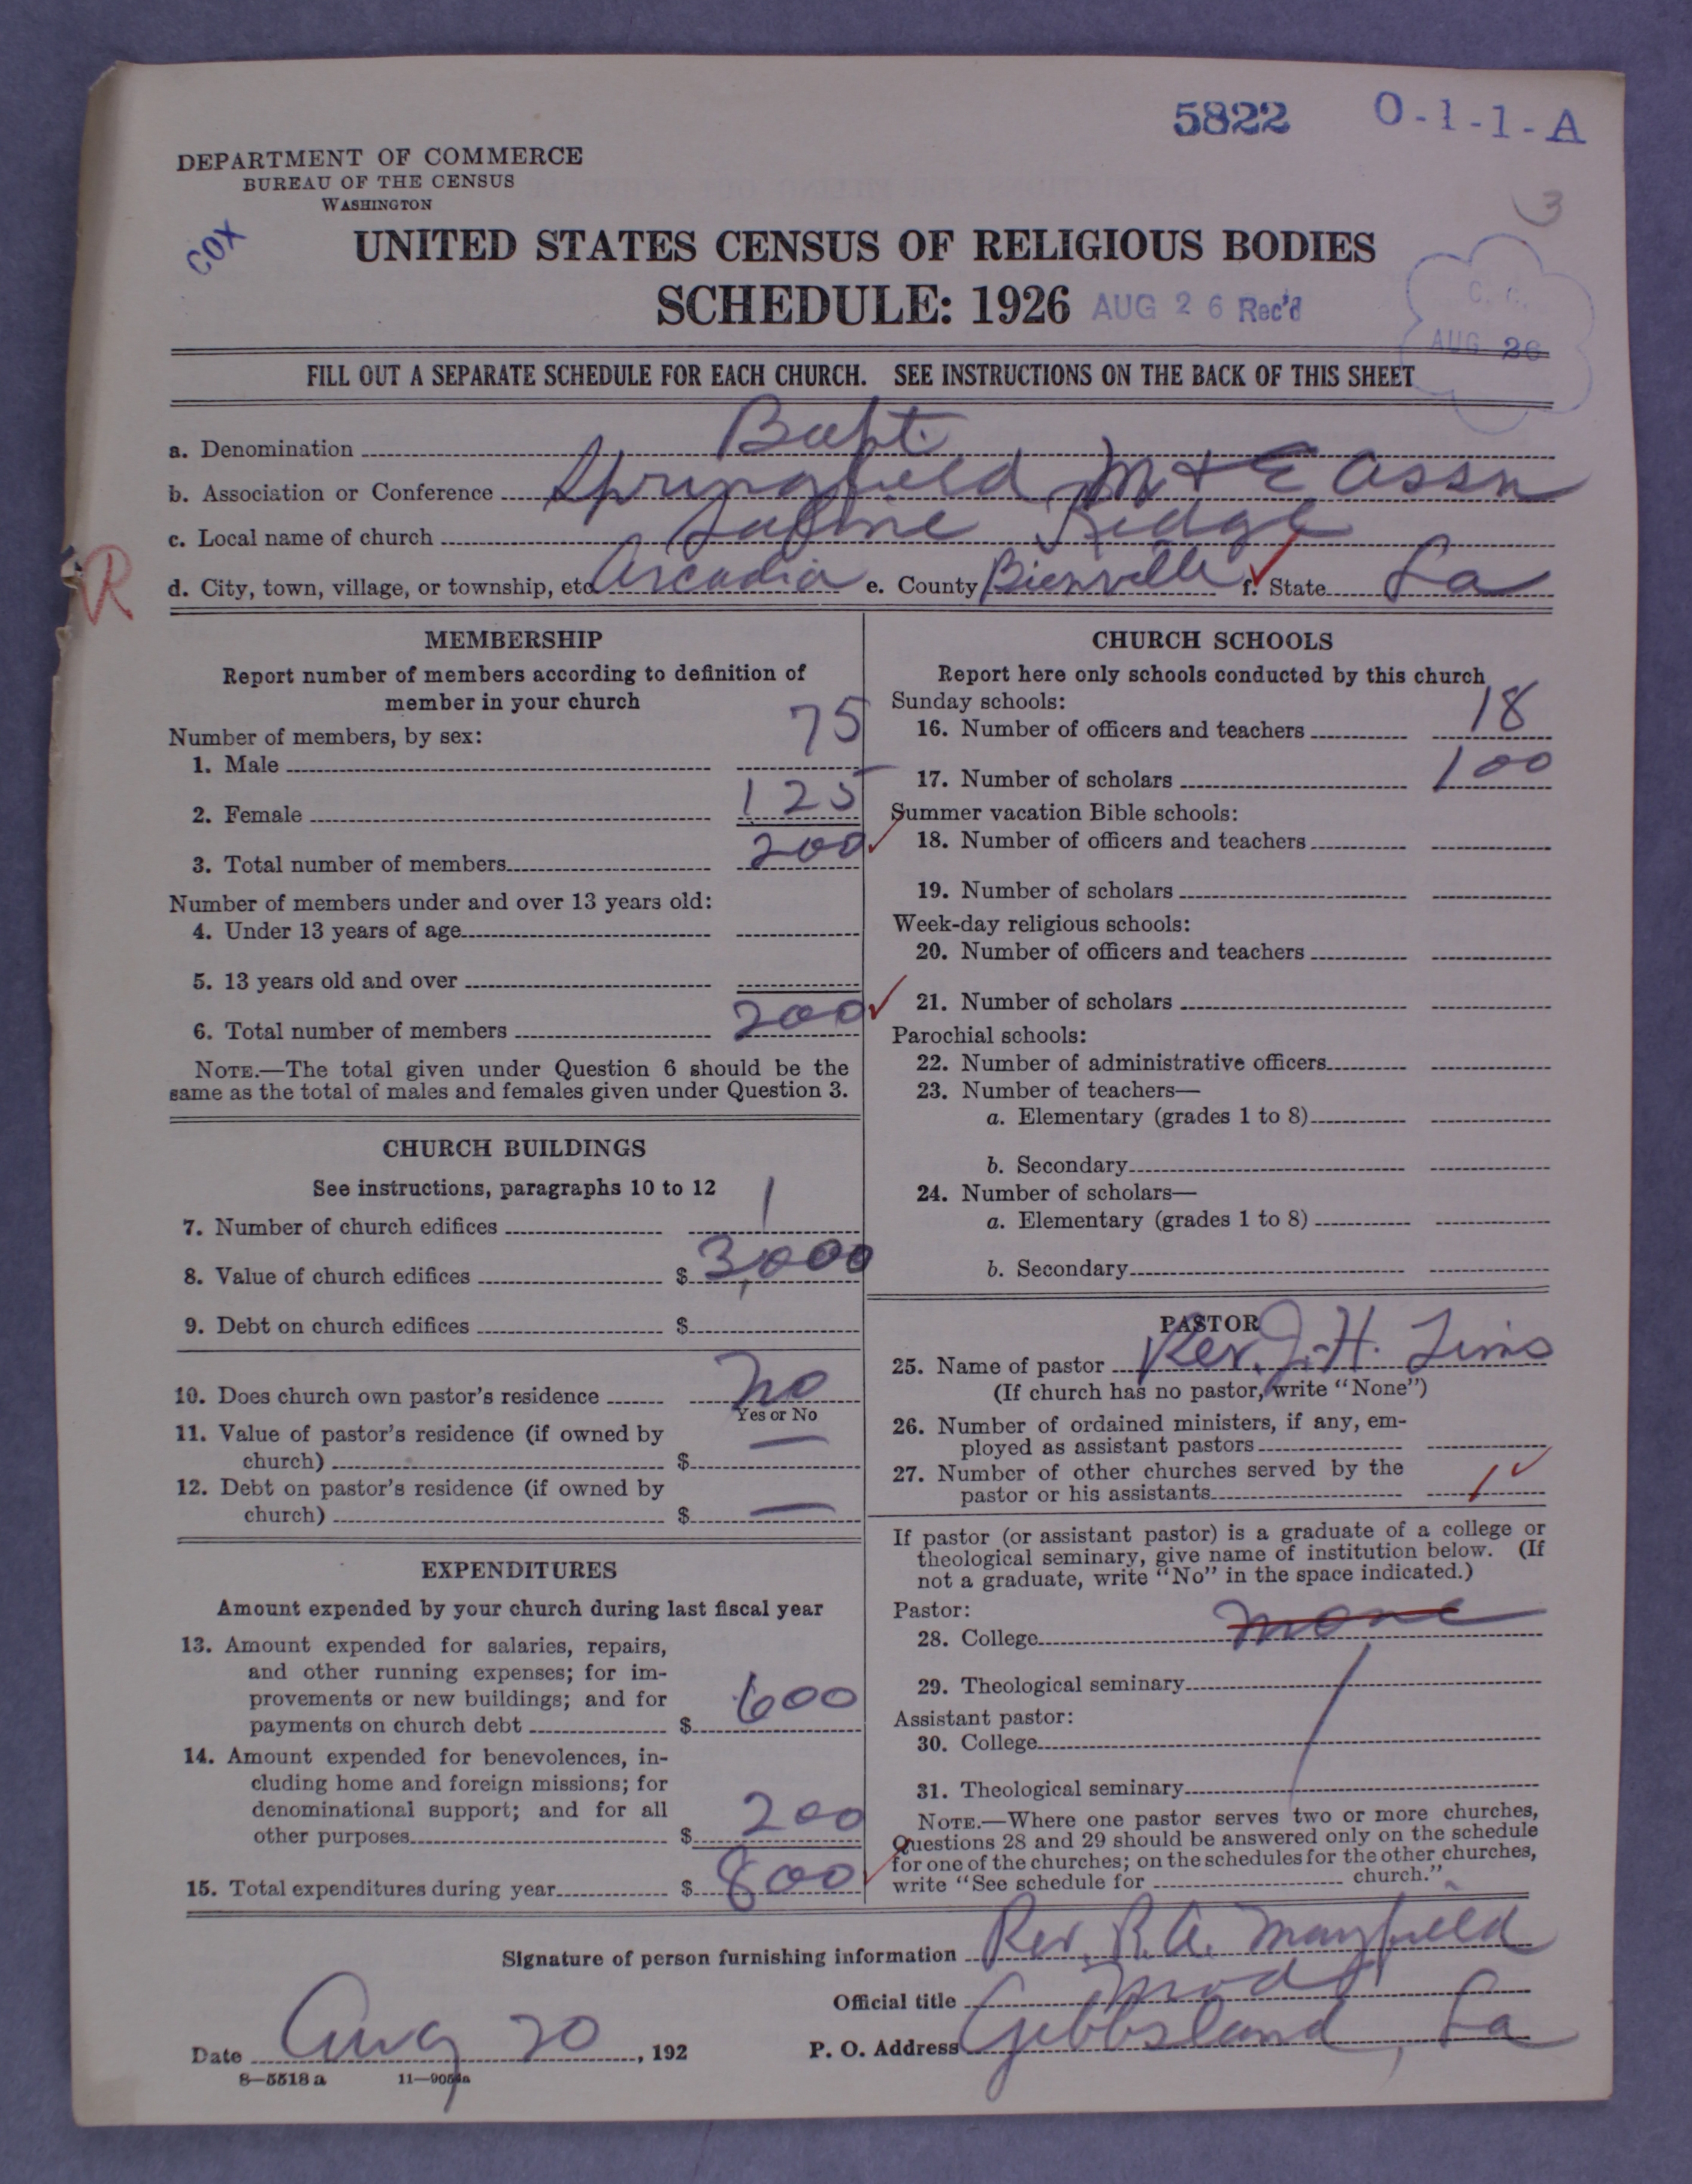 5822 O-1-1-A
DEPARTMENT OF COMMERCE
BUREAU OF THE CENSUS
WASHINGTON
3
COX
UNITED STATES CENSUS OF RELIGIOUS BODIES
SCHEDULE: 1926 AUG 26 Rec'd
AUG 26
FILL OUT A SEPARATE SCHEDULE FOR EACH CHURCH. SEE INSTRUCTIONS ON THE BACK OF THIS SHEET
a. Denomination Bapt.
b. Association or Conference Springfield M + E Assn
c. Local name of church Sabine Ridge
R
d. City, town, village, or township, etc. Arcadia e. County Bienville f. State La
MEMBERSHIP
Report number of members according to definition of
member in your church
Number of members, by sex:
1. Male 75
2. Female 125
3. Total number of members 200
Number of members under and over 13 years old:
4. Under 13 years of age
5. 13 years old and over
6. Total number of members 200
NOTE.—The total given under Question 6 should be the
same as the total of males and females given under Question 3.
CHURCH BUILDINGS
See instructions, paragraphs 10 to 12
7. Number of church edifices 1
8. Value of church edifices $ 3,000
9. Debt on church edifices $
10. Does church own pastor's residence No
Yes or No
11. Value of pastor's residence (if owned by
church) $ —
12. Debt on pastor's residence (if owned by
church) $ —
EXPENDITURES
Amount expended by your church during last fiscal year
13. Amount expended for salaries, repairs,
and other running expenses; for im-
provements or new buildings; and for
payments on church debt $ 600
14. Amount expended for benevolences, in-
cluding home and foreign missions; for
denominational support; and for all
other purposes $ 200
15. Total expenditures during year $ 800
CHURCH SCHOOLS
Report here only schools conducted by this church
Sunday schools:
16. Number of officers and teachers 18
17. Number of scholars 100
Summer vacation Bible schools:
18. Number of officers and teachers
19. Number of scholars
Week-day religious schools:
20. Number of officers and teachers
21. Number of scholars
Parochial schools:
22. Number of administrative officers
23. Number of teachers—
a. Elementary (grades 1 to 8)
b. Secondary
24. Number of scholars—
a. Elementary (grades 1 to 8)
b. Secondary
PASTOR
25. Name of pastor Rev. J. H. Sims
(If church has no pastor, write "None")
26. Number of ordained ministers, if any, em-
ployed as assistant pastors
27. Number of other churches served by the
pastor or his assistants 1
If pastor (or assistant pastor) is a graduate of a college or
theological seminary, give name of institution below. (If
not a graduate, write "No" in the space indicated.)
Pastor:
28. College none
29. Theological seminary
Assistant pastor:
30. College
31. Theological seminary
NOTE.—Where one pastor serves two or more churches,
Questions 28 and 29 should be answered only on the schedule
for one of the churches; on the schedules for the other churches,
write "See schedule for church."
Signature of person furnishing information Rev. R. A. Mayfield
Official title Mod
Date Aug 20, 192 P. O. Address Gibbsland, La
8—5518 a 11—9054a